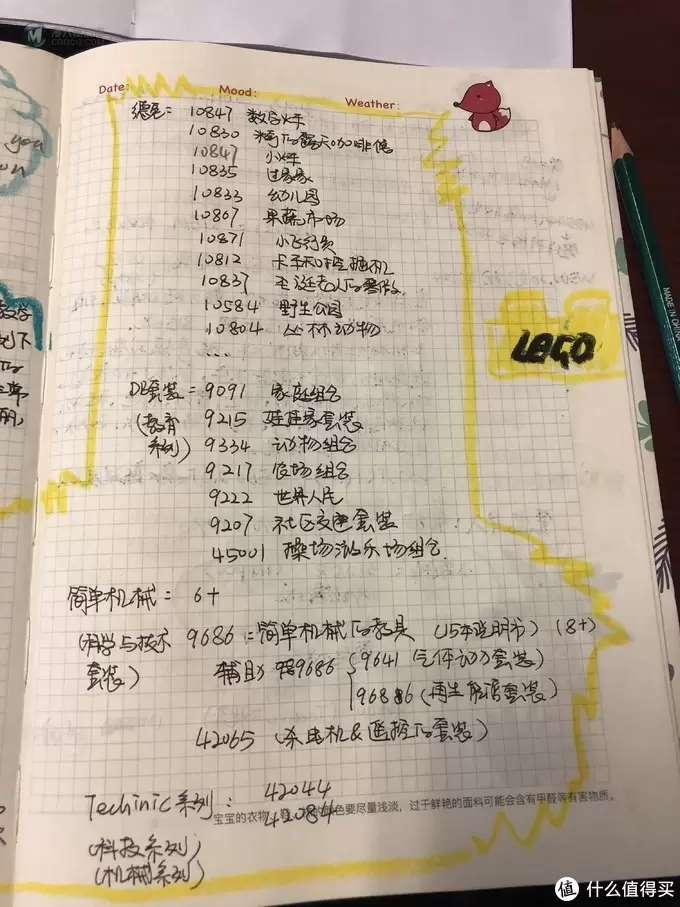 Date:
Mood:
Weather:
德宝: 10847 数字火车
10830 米奇的露天咖啡馆
10847 小火车
10835 过家家
10833 幼儿园
10867 果蔬市场
10871 小飞行员
10812 卡车和挖掘机
10837 圣诞老人的
10584 野生公园
10804 丛林动物
...
LEGO
DE套装 = 9091 家庭组合
(教育 9215 娃娃家套装
系列) 9334 动物组合
9217 农场组合
9222 世界人民
9207 社区交通套装
45001 操场游乐场组合
简单机械 = 6+
(科学与技术 9686 = 简单机械的教具 (15本说明书) (8+)
套装) 辅助 9686 { 9641 气体动力套装)
96886 (再生能源套装)
42065 (杀电机&遥控的套装)
Techinic系列: 42044
42084
宝宝的衣物 色要尽量浅淡，过于鲜艳的面料可能会含有甲醛等有害物质。
(科技系列)
(机械系列)
you
on
MADE IN
值 什么值得买